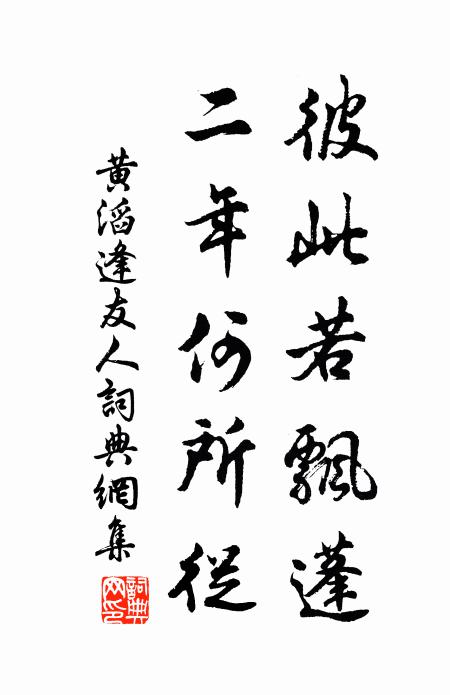 彼此若飄蓬
二年何所從
黃滔逢友人詞典網集